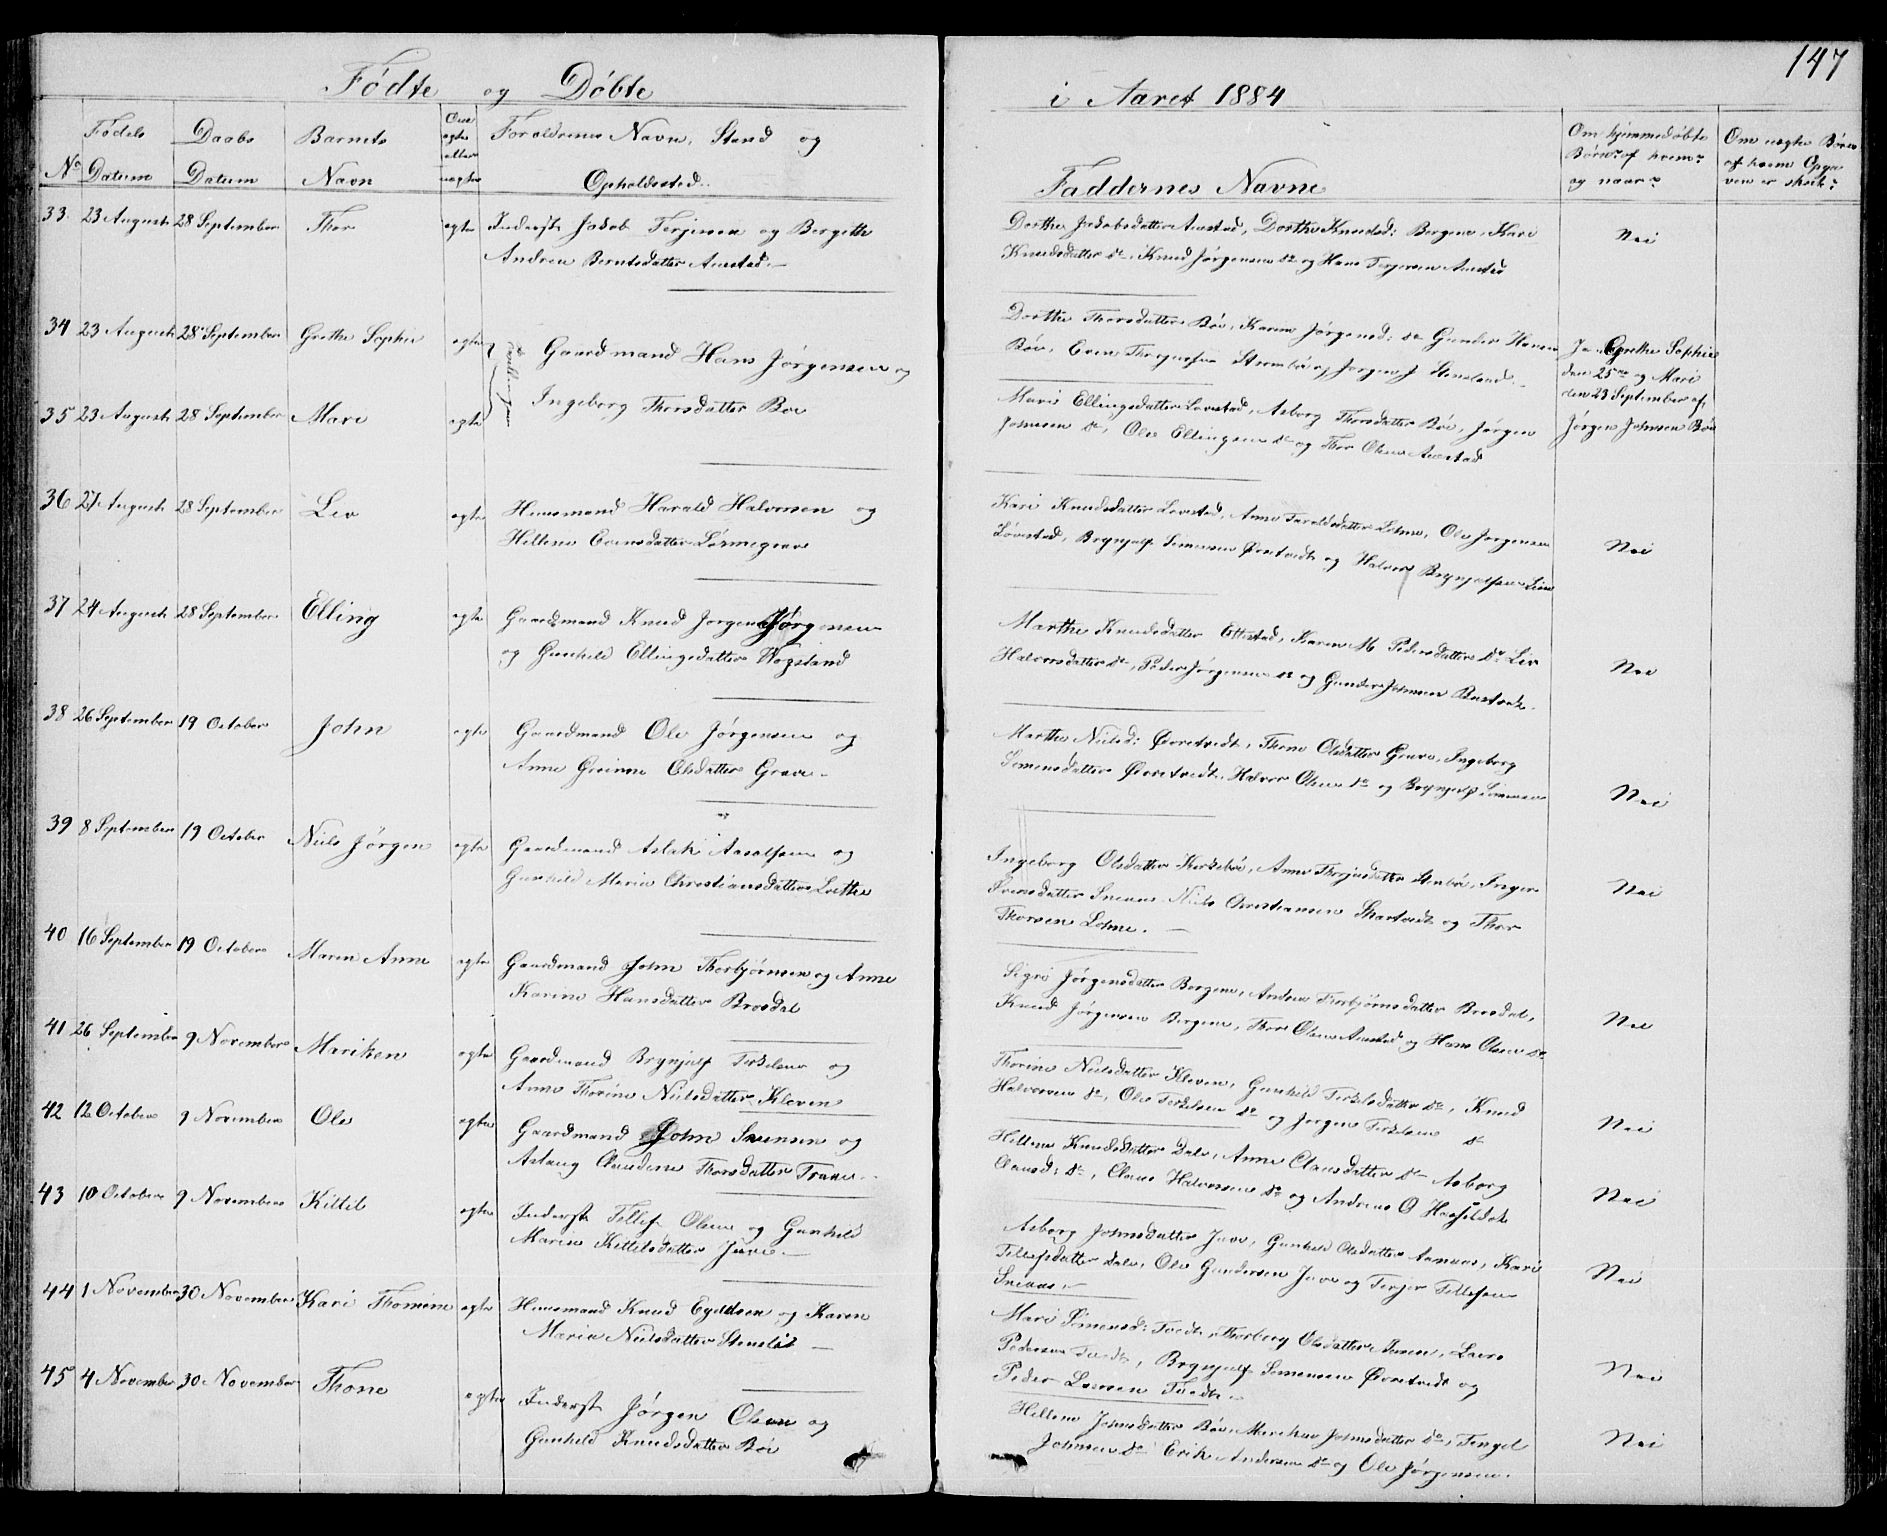 147
Fødte og Døbte
i Aaret 1884
No
Fødsels Datum
Daabs Datum
Barnets Navn
Om ægte eller uægte
Forældrenes Navn, Stand og
Opholdssted.
Faddernes Navne
Om hjemmedøbte
Børn? af hvem?
og naar?
Om uægte Børn
af hvem Opga-
ven er skeet?
33. 23 August 28 September Thor ægte Inderst Jakob Terjesen og Bergitte
Andrea Berntsdatter
Dorthe Jakobsdatter Dorthe Knudsd: Bergene, Kari
Knudsdatter do Knud Jørgensen do og Hans Terjesen
Nei
34 23 August 28 September Grethe Sophie ægte
Gaardmand Hans Jørgensen og
Dorthe Thorsdatter Bøe, Karen Jørgensd: do Gunder Hansen
Bøe, Even og Jørgen J.
Ja. Grethe Sophie
den 25de og Mari
den 23 September af
Jørgen Johnsen Bøe
Tvillinger
35 23 August 28 September Mari ægte
Ingeborg Thorsdatter Bøe
Maris Ellingsdatter Lovstad, Asborg Thorsdatter Bøe, Jørgen
Johnsen do, Ole Ellingsen do og Thor Olsen
36 27 August 28 September Liv ægte Huusmand Harald Halvorsen og
Hellene Evensdatter
Kari Knudsdatter Lovstad, Anne Taraldsdatter Lohne, Ole Jørgensen
Løvstad, Brynjulf Simensen Øvretvedt og Halvor Brynjulfsen Lien
Nei
37 24 August 28 September Elling ægte Gaardmand Knud Jørgensen
og Gunhild Ellingsdatter Vogsland
Marthe Knudsdatter Karen M. Pedersdatter do Liv
Halvorsdatter do, Peder Jørgensen do og Gunder Johnsen
Nei
38 26 September 19 October John ægte Gaardmand Ole Jørgensen og
Anne Gurine Olsdatter Grave
Marthe Nielsd: Øvretvedt, Thone Olsdatter Grave, Ingeborg
Simensdatter Øvretvedt, Halvor Olsen do og Brynjulf Simensen
Nei
39 8 September 19 October Niels Jørgen ægte Gaardmand Aslak og
Gunhild Maria Christiansdatter
Ingeborg Olsdatter Kirkebøe, Anne Inger
Svensdatter Niels Christiansen og Thor
Thorsen Lohne.
Nei
40 16 September 19 October Maren Anne ægte Gaardmand John Thorbjørnsen og Anne
Karine Hansdatter Brosdal
Sigri Jørgensdatter Bergene, Andrea Thorbjørnsdatter Brosdal,
Knud Jørgensen Bergene, Thor Olsen og Hans Olsen do
Nei
41 26 September 9 November Mariken ægte Gaardmand Brynjulf Terkelsen og
Anne Thorine Nielsdatter Kleven
Thorine Nielsdatter Kleven, Gunhild Terkelsdatter do, Knud
Halvorsen do, Ole Terkelsen do og Jørgen Terkelsen do
Nei
42 12 October 9 November Ole ægte Gaardmand John Svensen og
Aslaug Claudine Thorsdatter
Hellene Knudsdatter Dale, Anne Clausdatter do Asborg
Clausd: do, Claus Halvorsen do og Andreas O
Nei
43 10 October 9 November Kittil ægte Inderst Tellef Olsen og Gunhild
Marie Kittilsdatter Juve
Asborg Johnsdatter Juve, Gunhild Olsdatter Kari
Tellefsdatter Dale, Ole Gundersen Juve og Terjer Tellefsen
Nei
44 1 November 30 November Kari Thomine ægte Huusmand Knud og Karen
Maria Nielsdatter
Mari Simensd: Tvedt, Thorborg Olsdatter Lars
Pedersen Tvedt, Brynjulf Simensen Øvretvedt og
Peder Larsen Tvedt
Nei
45 4 November 30 November Thone ægte Inderst Jørgen Olsen og
Gunhild Knudsdatter Bøe
Hellene Johnsdatter Bøe, Mariken Johnsdatter do, Tengel
Johnsen do Erik Andersen do og Ole Jørgensen.
Nei